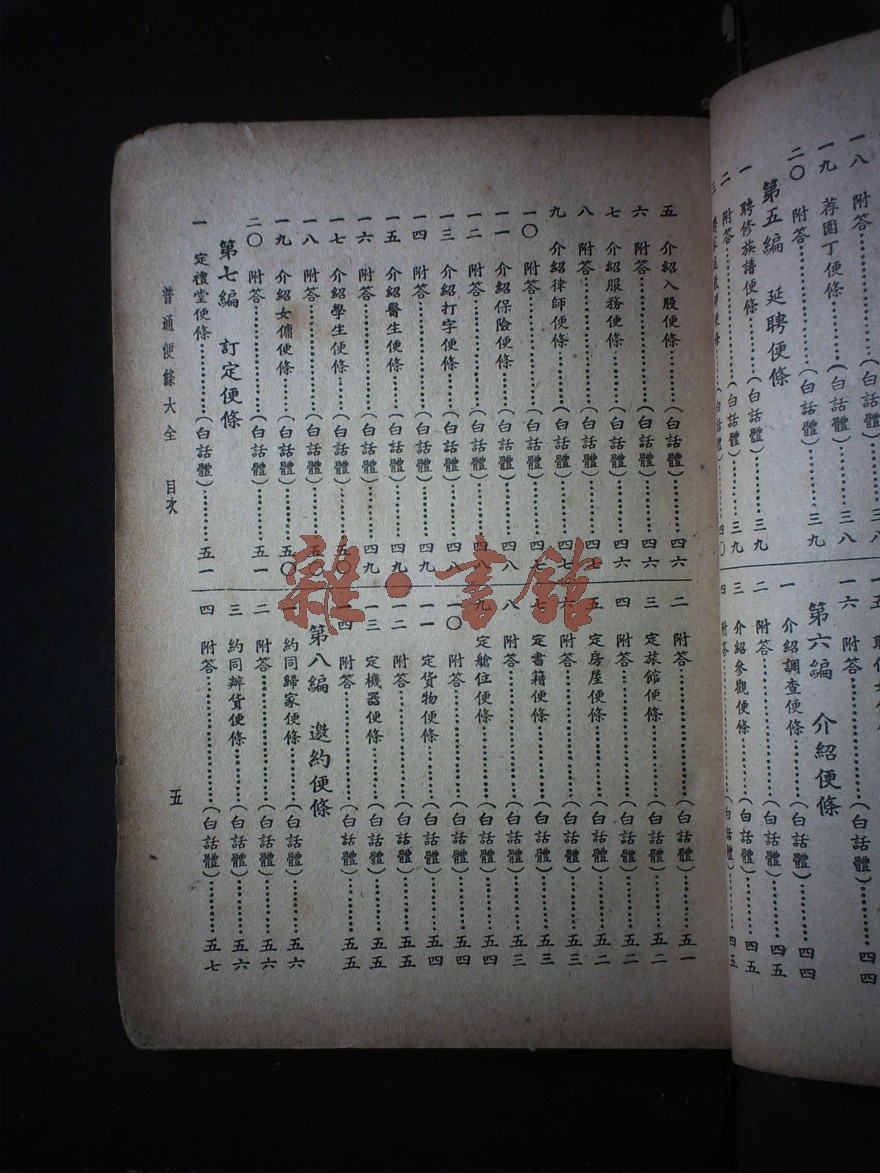 一八 附答……(白話體)……三八
一九 荐園丁便條……(白話體)……三八
二〇 附答……(白話體)……三九
第五編 延聘便條
一 聘修族譜便條……(白話體)……三九
二 附答……(白話體)……三九
一六 附答……(白話體)……四四
第六編 介紹便條
一 介紹調查便條……(白話體)……四四
二 附答……(白話體)……四五
三 介紹參觀便條……(白話體)……四五
四 附答……(白話體)……四五
五 介紹入股便條……(白話體)……四六
六 附答……(白話體)……四六
七 介紹服務便條……(白話體)……四六
八 附答……(白話體)……四七
九 介紹律師便條……(白話體)……四七
一〇 附答……(白話體)……四七
一一 介紹保險便條……(白話體)……四八
一二 附答……(白話體)……四八
一三 介紹打字便條……(白話體)……四八
一四 附答……(白話體)……四九
一五 介紹醫生便條……(白話體)……四九
一六 附答……(白話體)……四九
一七 介紹學生便條……(白話體)……五〇
一八 附答……(白話體)……五〇
一九 介紹女傭便條……(白話體)……五〇
二〇 附答……(白話體)……五一
第七編 訂定便條
一 定禮堂便條……(白話體)……五一
二 附答……(白話體)……五一
三 定旅館便條……(白話體)……五二
四 附答……(白話體)……五二
五 定房屋便條……(白話體)……五二
六 附答……(白話體)……五三
七 定書籍便條……(白話體)……五三
八 附答……(白話體)……五三
九 定艙位便條……(白話體)……五四
一〇 附答……(白話體)……五四
一一 定貨物便條……(白話體)……五四
一二 附答……(白話體)……五五
一三 定機器便條……(白話體)……五五
一四 附答……(白話體)……五五
第八編 邀約便條
一 約同歸家便條……(白話體)……五六
二 附答……(白話體)……五六
三 約同辦貨便條……(白話體)……五六
四 附答……(白話體)……五七
普通便條大全 目次
五
雜·書館